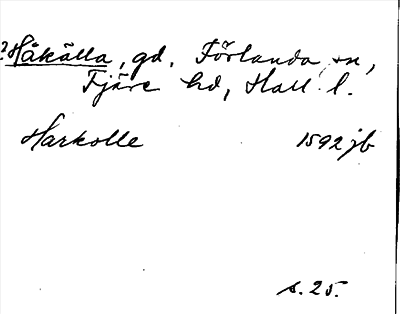 ?Håkälla, gd, Förlanda sn,
Fjäre hd, Hall. l.
Harkolle 1592 jb
s. 25.